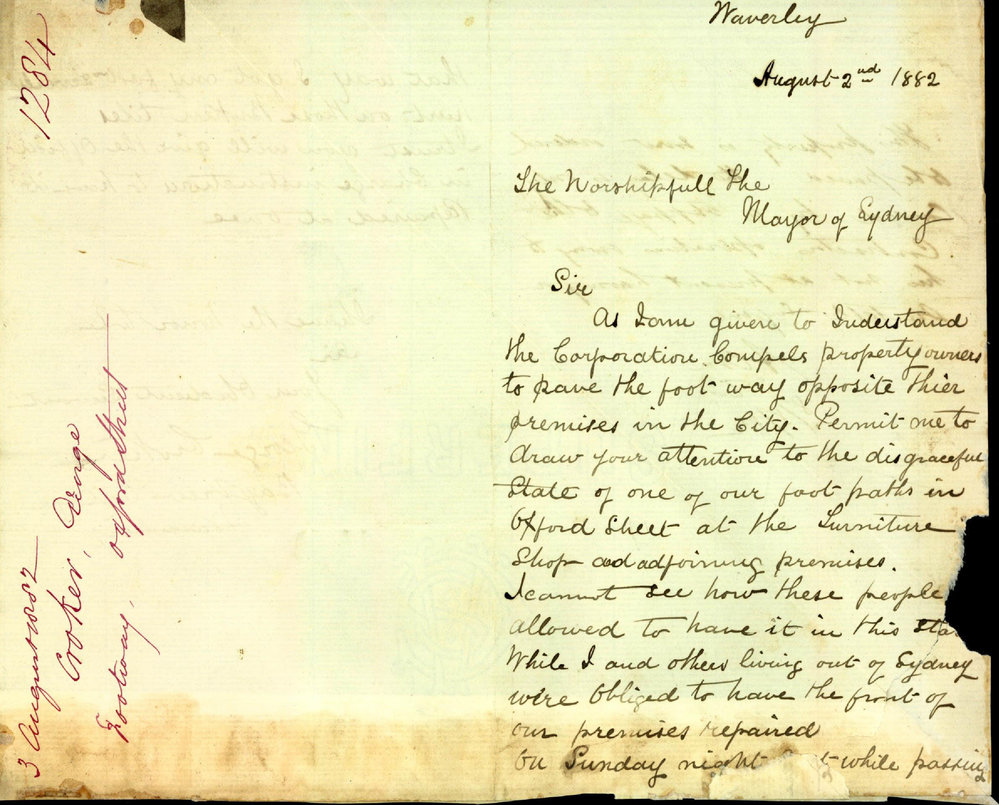 1284
3 August 1882
Croker, George
Footway, Oxford Street
Waverley
August 2nd 1882
The Worshipfull The
Mayor of Sydney
Sir
As I am given to Understand
the Corporation Compels property owners
to pave the foot way opposite thier
premises in the City. Permit me to
draw your attention to the disgraceful
State of one of our foot paths in
Oxford Street at the Furniture
Shop and adjoining premises.
I cannot see how these people
allowed to have it in this
While I and others living out of Sydney
were Obliged to have the front of
our premises repaired
On Sunday night while passing